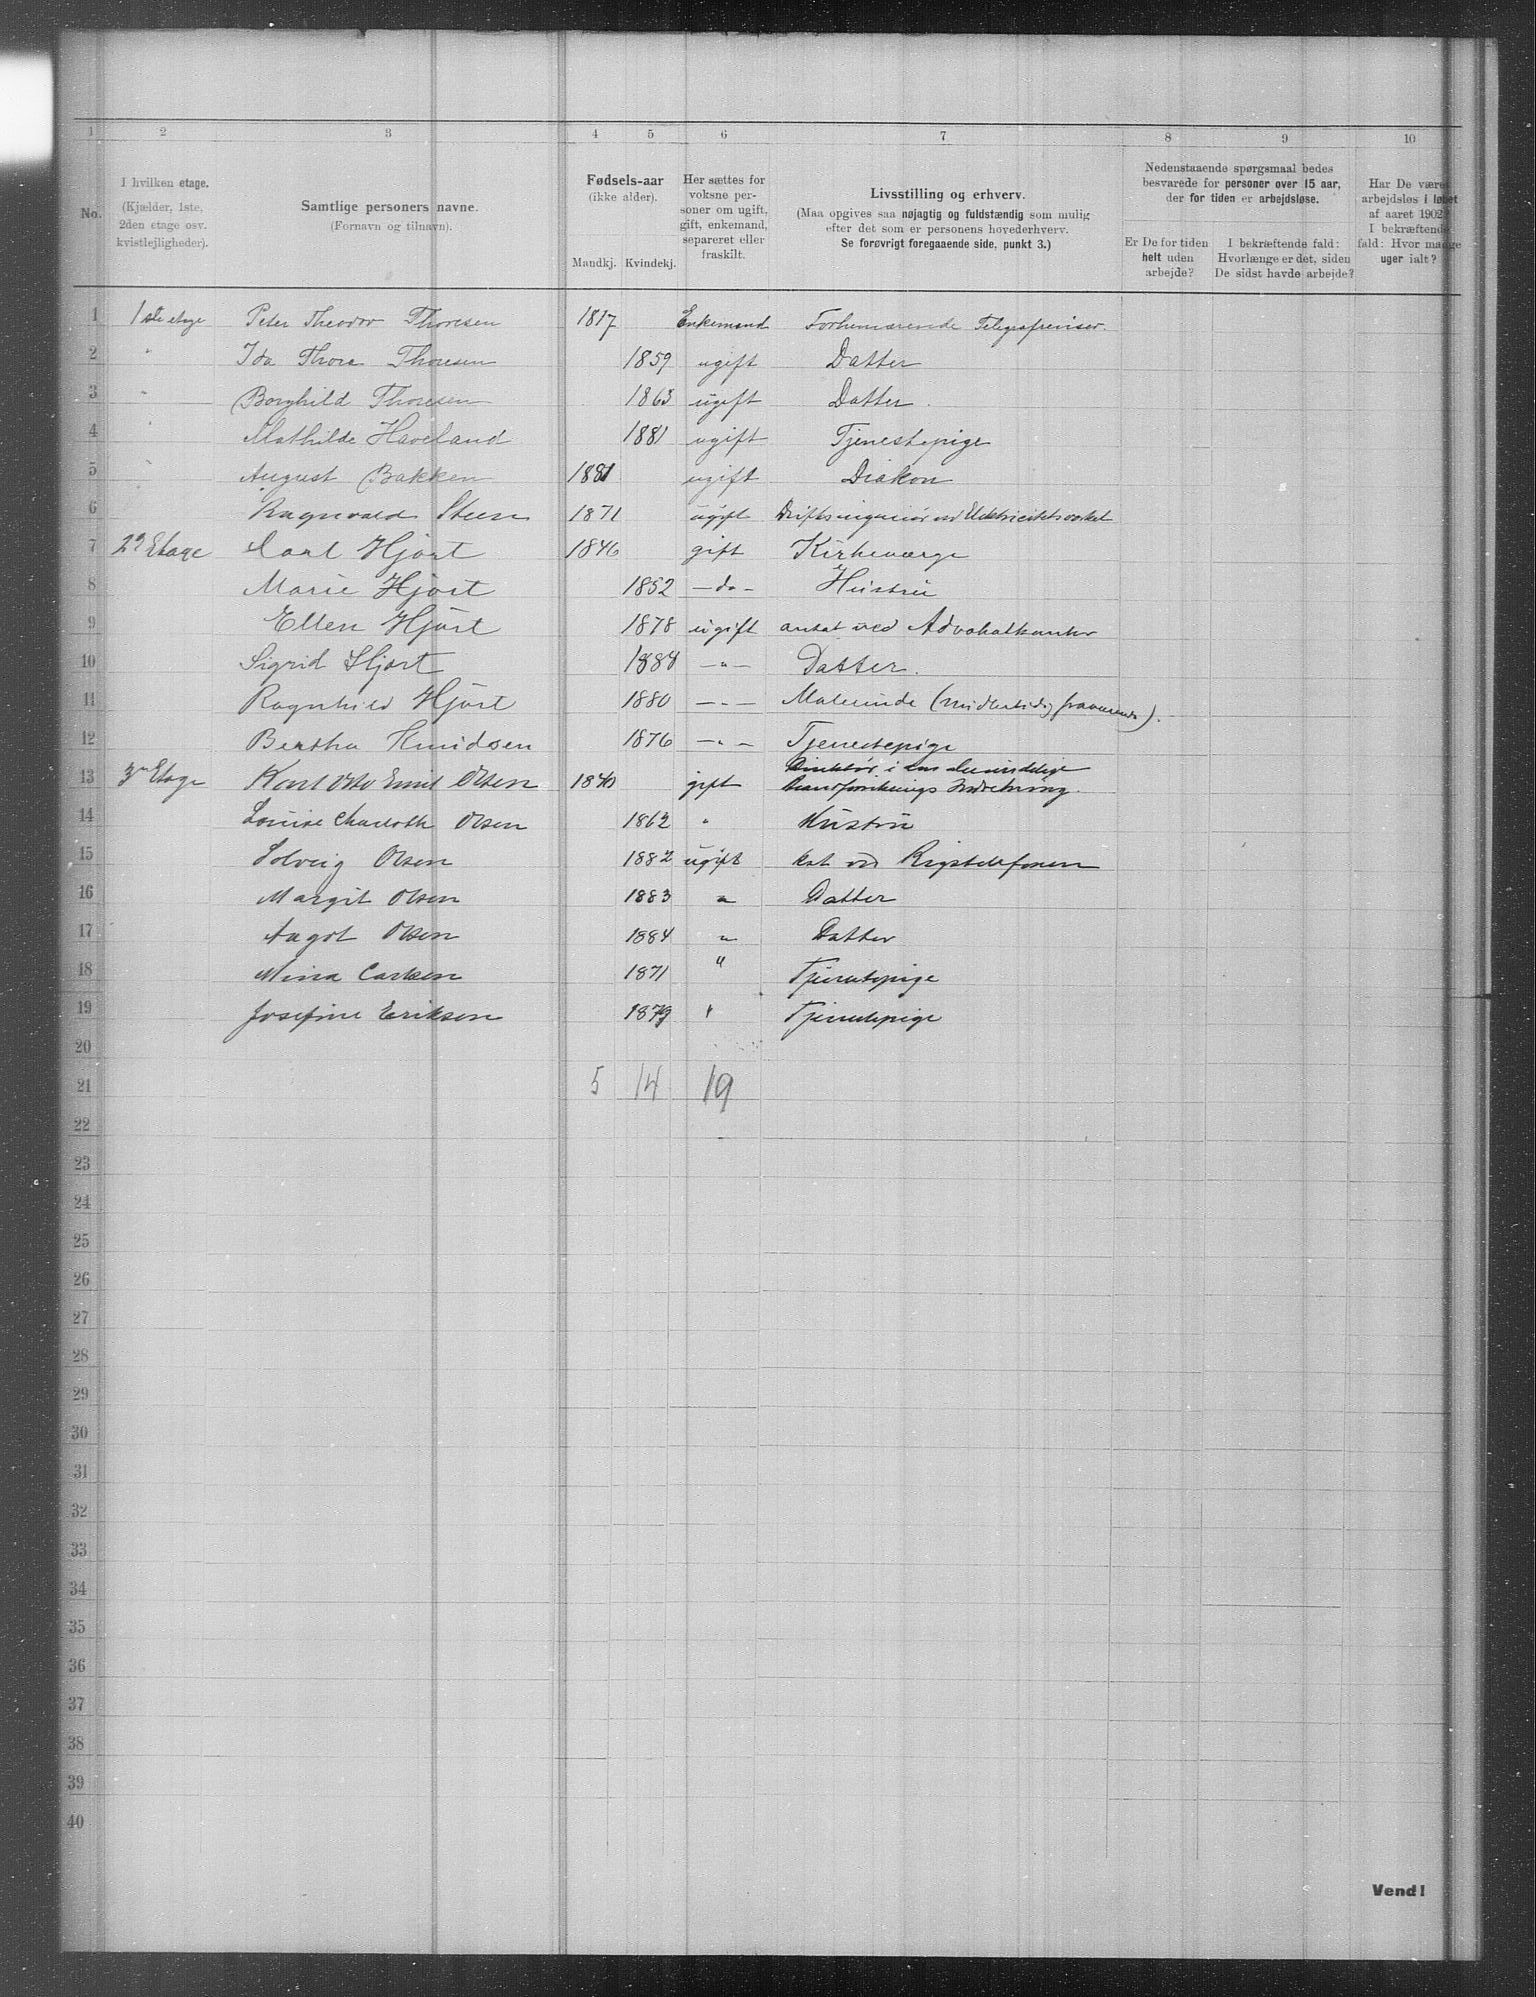 1 2 3 4 5 6 7 8 9 10
No.
I hvilken etage.
(Kjælder, 1ste,
2den etage osv.
kvistlejligheder).
Samtlige personers navne.
(Fornavn og tilnavn).
Fødsels-aar
(ikke alder).
Mandkj. Kvindekj.
Her sættes for
voksne per-
soner om ugift,
gift, enkemand,
separeret eller
fraskilt.
Livsstilling og erhverv.
(Maa opgives saa nøjagtig og fuldstændig som mulig
efter det som er personens hovederhverv.
Se forøvrigt foregaaende side, punkt 3.)
Nedenstaaende spørgsmaal bedes
besvarede for personer over 15 aar,
der for tiden er arbejdsløse.
Er De for tiden
helt uden
arbejde?
I bekræftende fald:
Hvorlænge er det, siden
De sidst havde arbejde?
Har De være
arbejdsløs i løbet
af aaret 1902?
I bekræftende
fald: Hvor mange
uger ialt?
1 1ste etage Peter Theodor Thoresen 1817 Enkemand Forhenværende Telegrafrevisor.
2 " Ida Thora Thoresen 1859 ugift Datter
3 " Borghild Thoresen 1863 ugift Datter.
4 " Mathilde Haveland 1881 ugift Tjenestepige
5 " August Bakken 1881 ugift Diakon
6 Ragnvald Steen 1871 ugift Driftsingeniør ved Elektricitetsverket
7 2n Etage Carl Hjort 1846 gift Kirkeværge
8 Marie Hjort 1852 - do - Hustru
9 Ellen Hjort 1878 ugift ansat ved Advokatkontor
10 Sigrid Hjort 1884 - " - Datter.
11 Ragnhild Hjort 1880 - " - Malerinde (midlertidig fraværende).
12 Bertha Knudsen 1876 - " - Tjenestepige
13 3die Etage Karl Otto Emil Olsen 1840 gift Direktør i
Brandforsikrings Indretning.
14 Louise Charloth Olsen 1862 " Hustru
15 Solveig Olsen 1882 ugift ved Rigstelefonen
16 Margit Olsen 1883 " Datter
17 Aagot Olsen 1884 " Datter
18 Mina Carlsen 1871 " Tjenestepige
19 Josefine Eriksen 1879 " Tjenestepige
20
21 5 14 19
22
23
24
25
26
27
28
29
30
31
32
33
34
35
36
37
38
39
40
Vend!